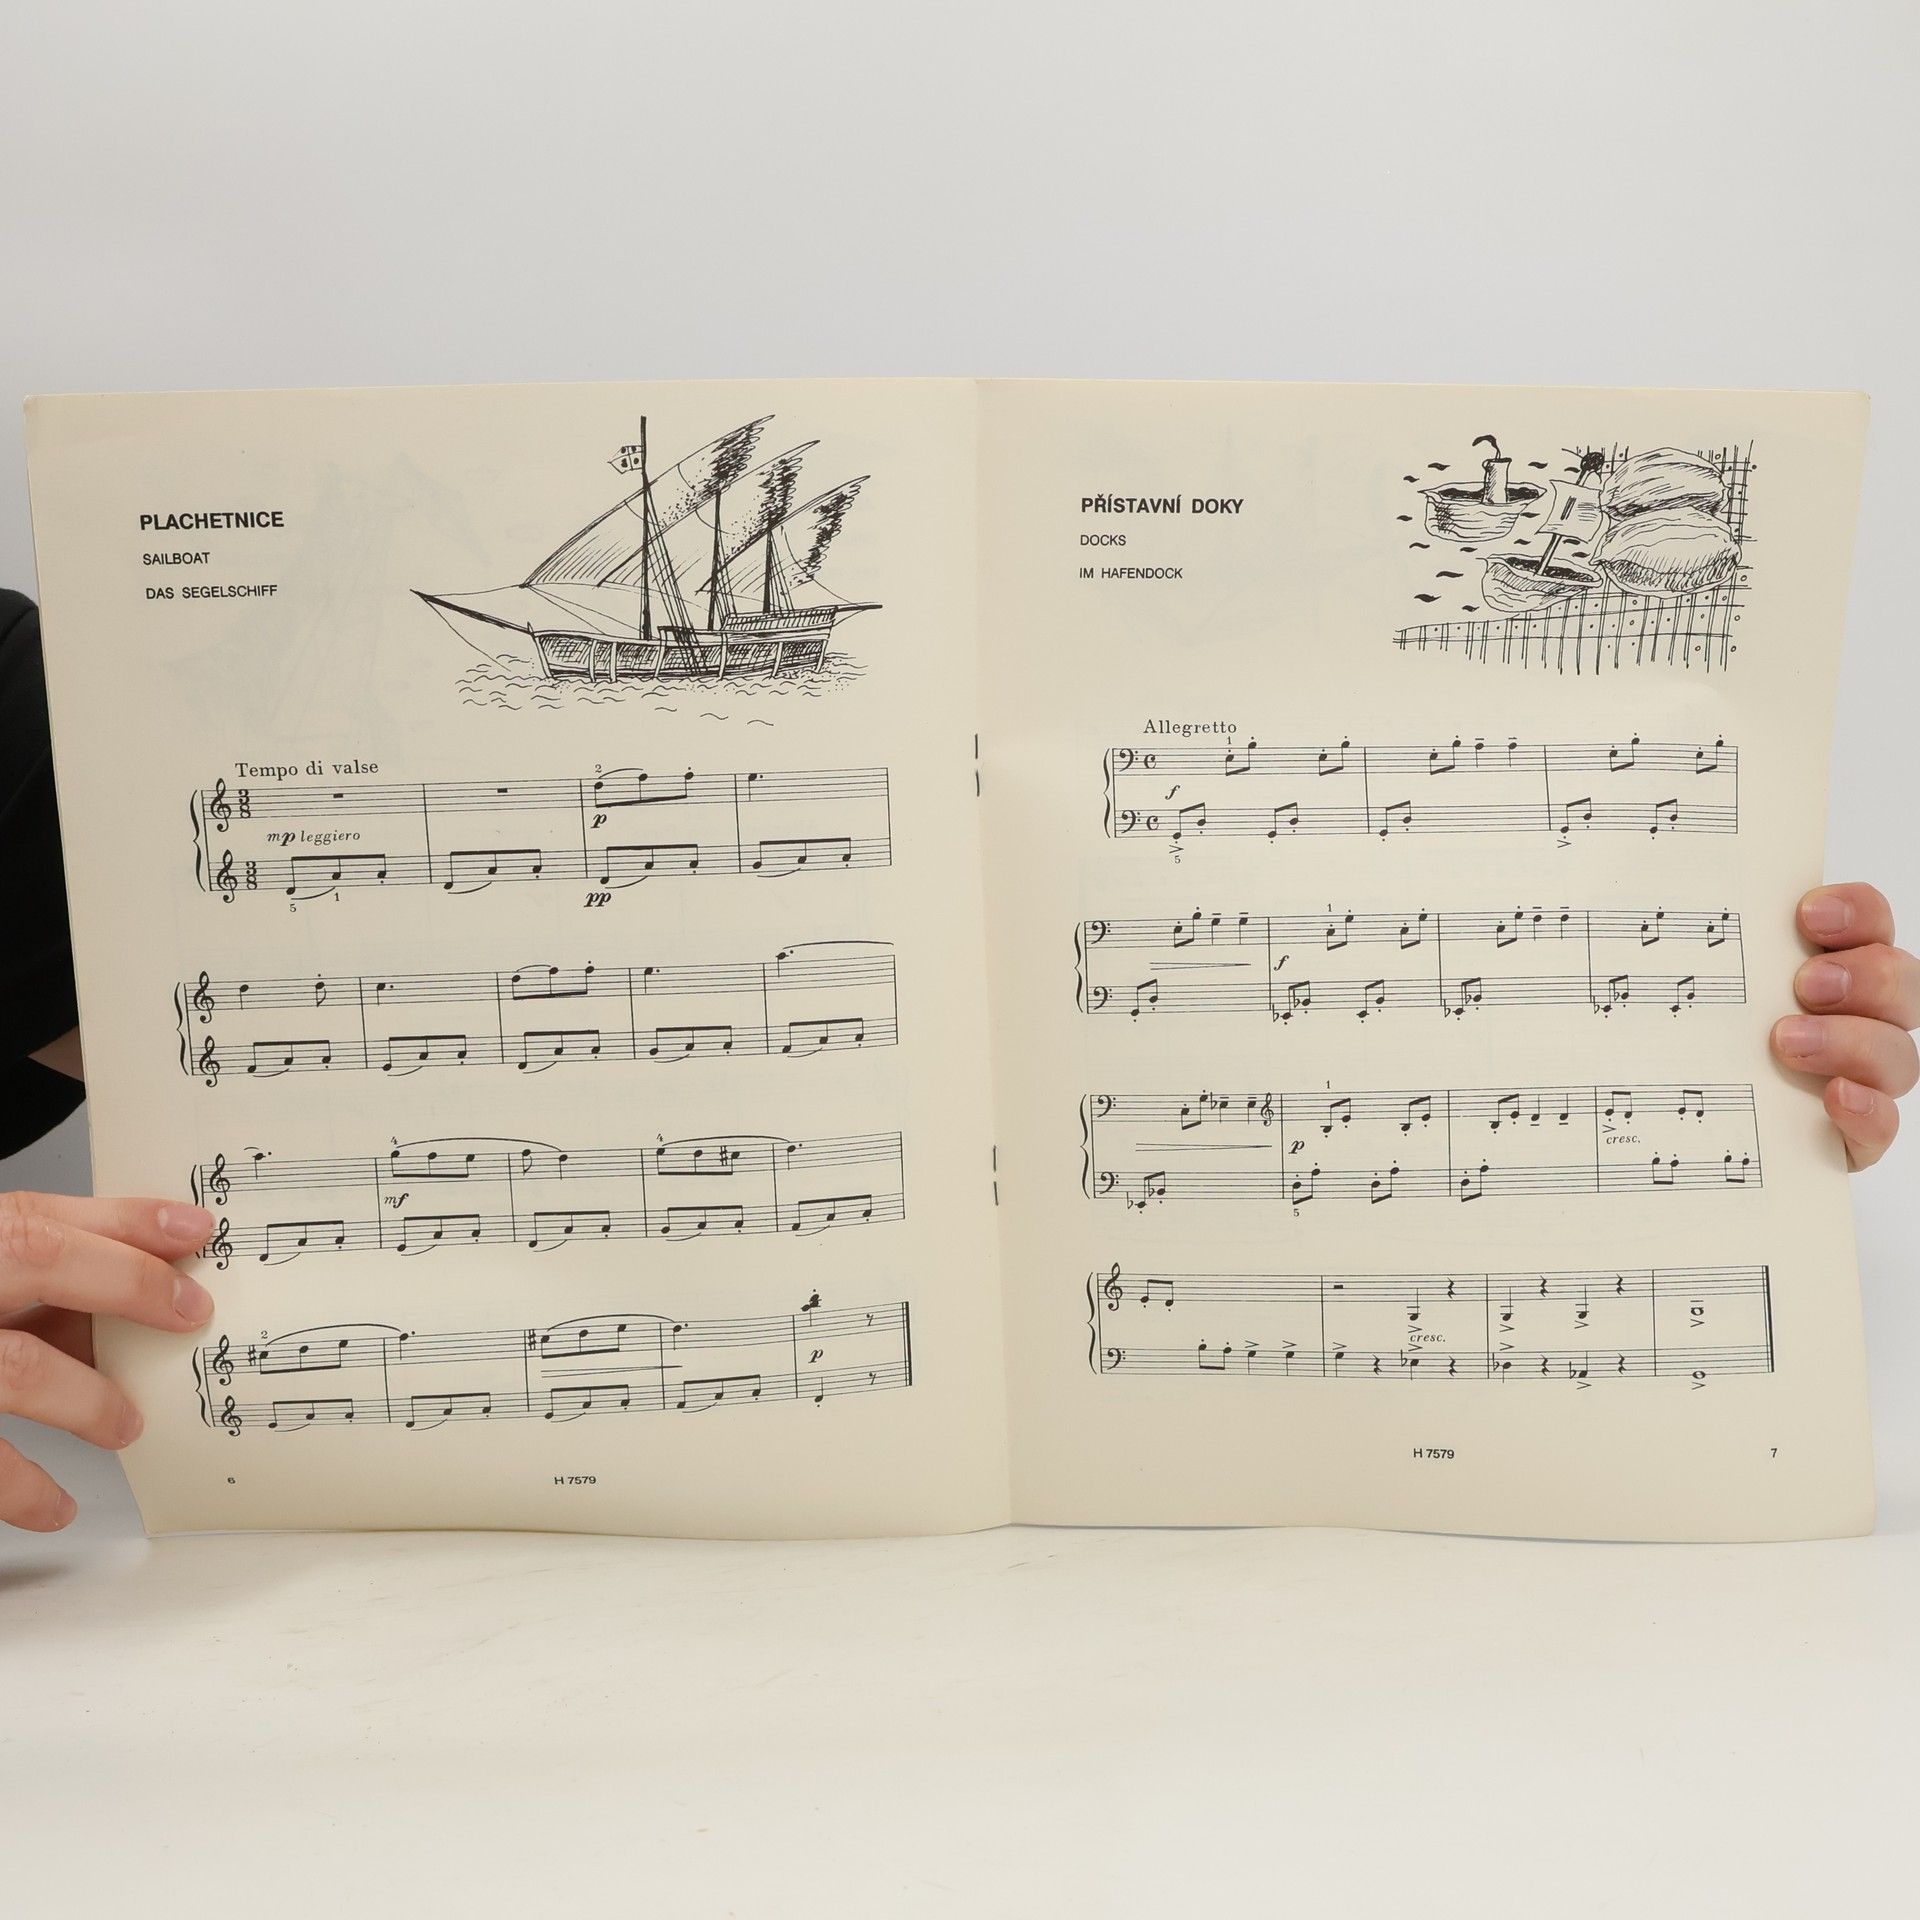 PLACHETNICE
SAILBOAT
DAS SEGELSCHIFF
Tempo di valse
3
8
mp leggiero
3
8
2
p
5
1
pp
4
mf
4
2
p
6
H 7579
PŘÍSTAVNÍ DOKY
DOCKS
IM HAFENDOCK
Allegretto
1
f
5
1
f
1
p
cresc.
5
cresc.
H 7579
7